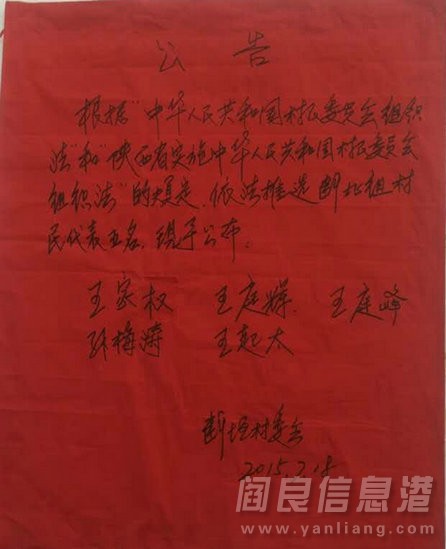 公告
根据"中华人民共和国村民委员会组织
法"和"陕西省实施中华人民共和国村民委员会
组织法"的规定,依法推选断北组村
民代表五名,现予公布。
王家权 王庭嶸 王庭峰
孙梅涛 王起太
断垣村委会
2015.7.15
阎良信息港
www.yanliang.com